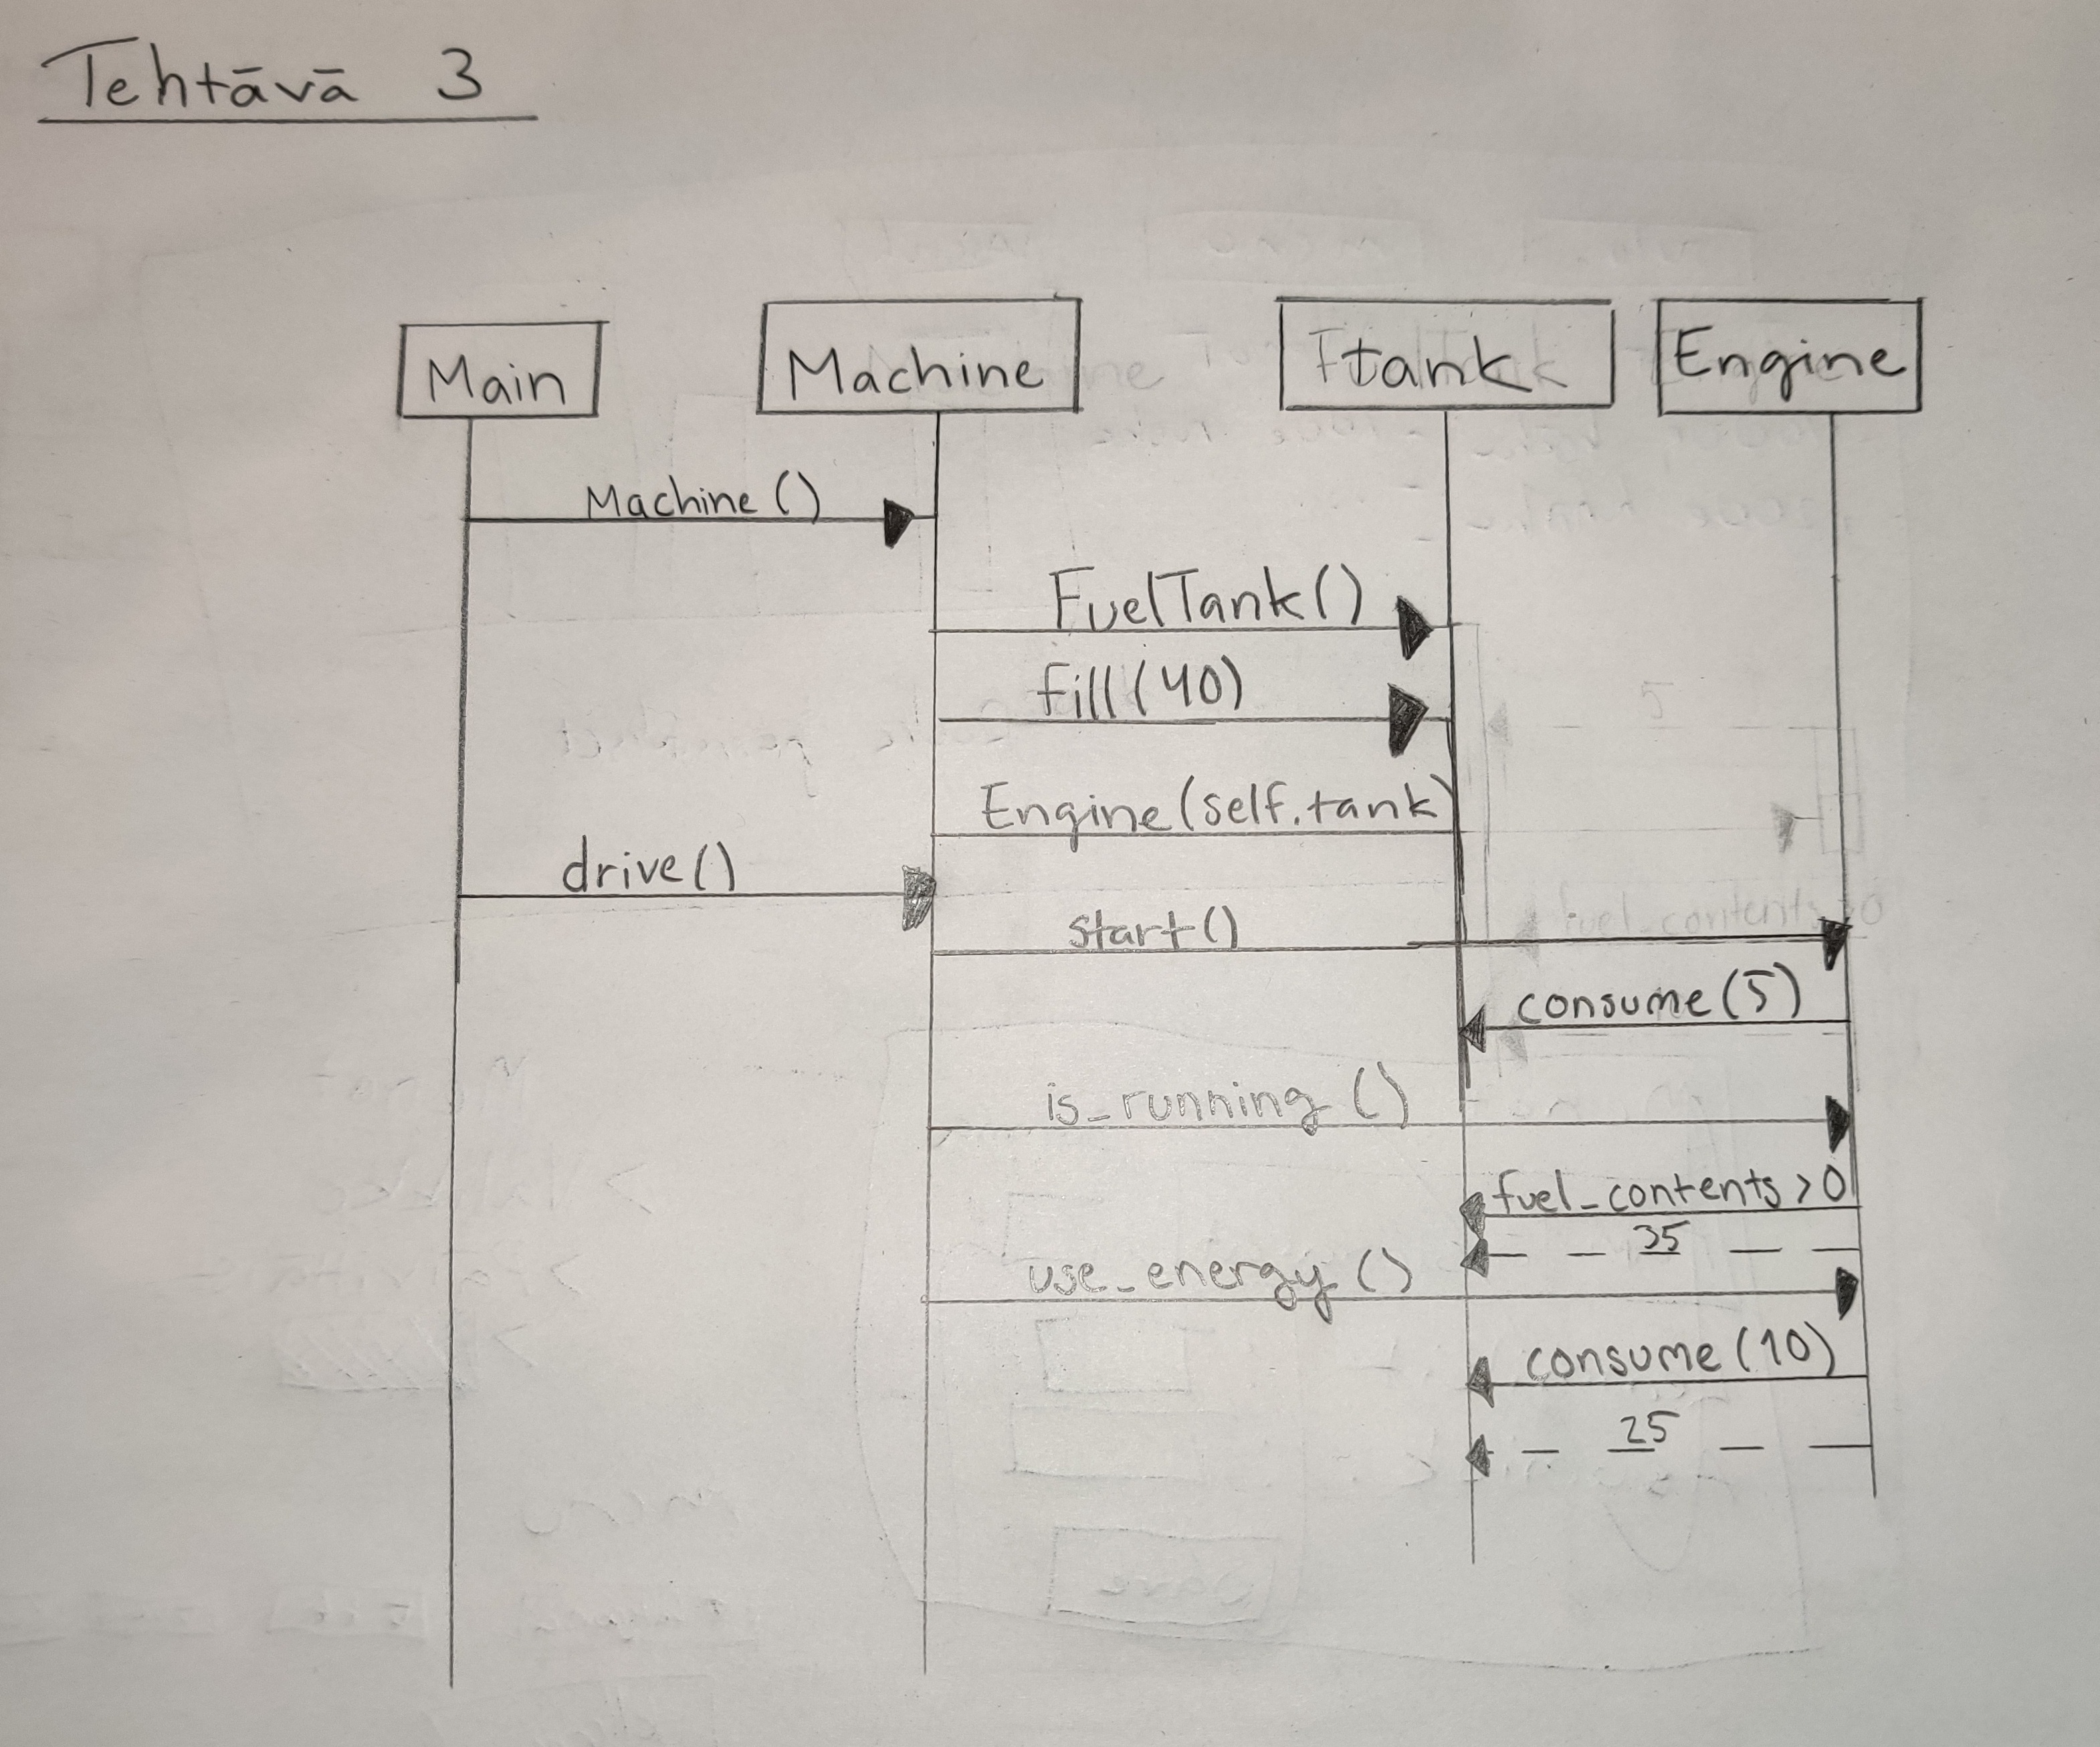 Tehtävä 3
Main
Machine
Ftank
Engine
Machine ()
FuelTank()
fill(40)
Engine(self.tank)
drive()
start()
consume(5)
is_running ()
fuel_contents > 0
35
use_energy ()
consume (10)
25